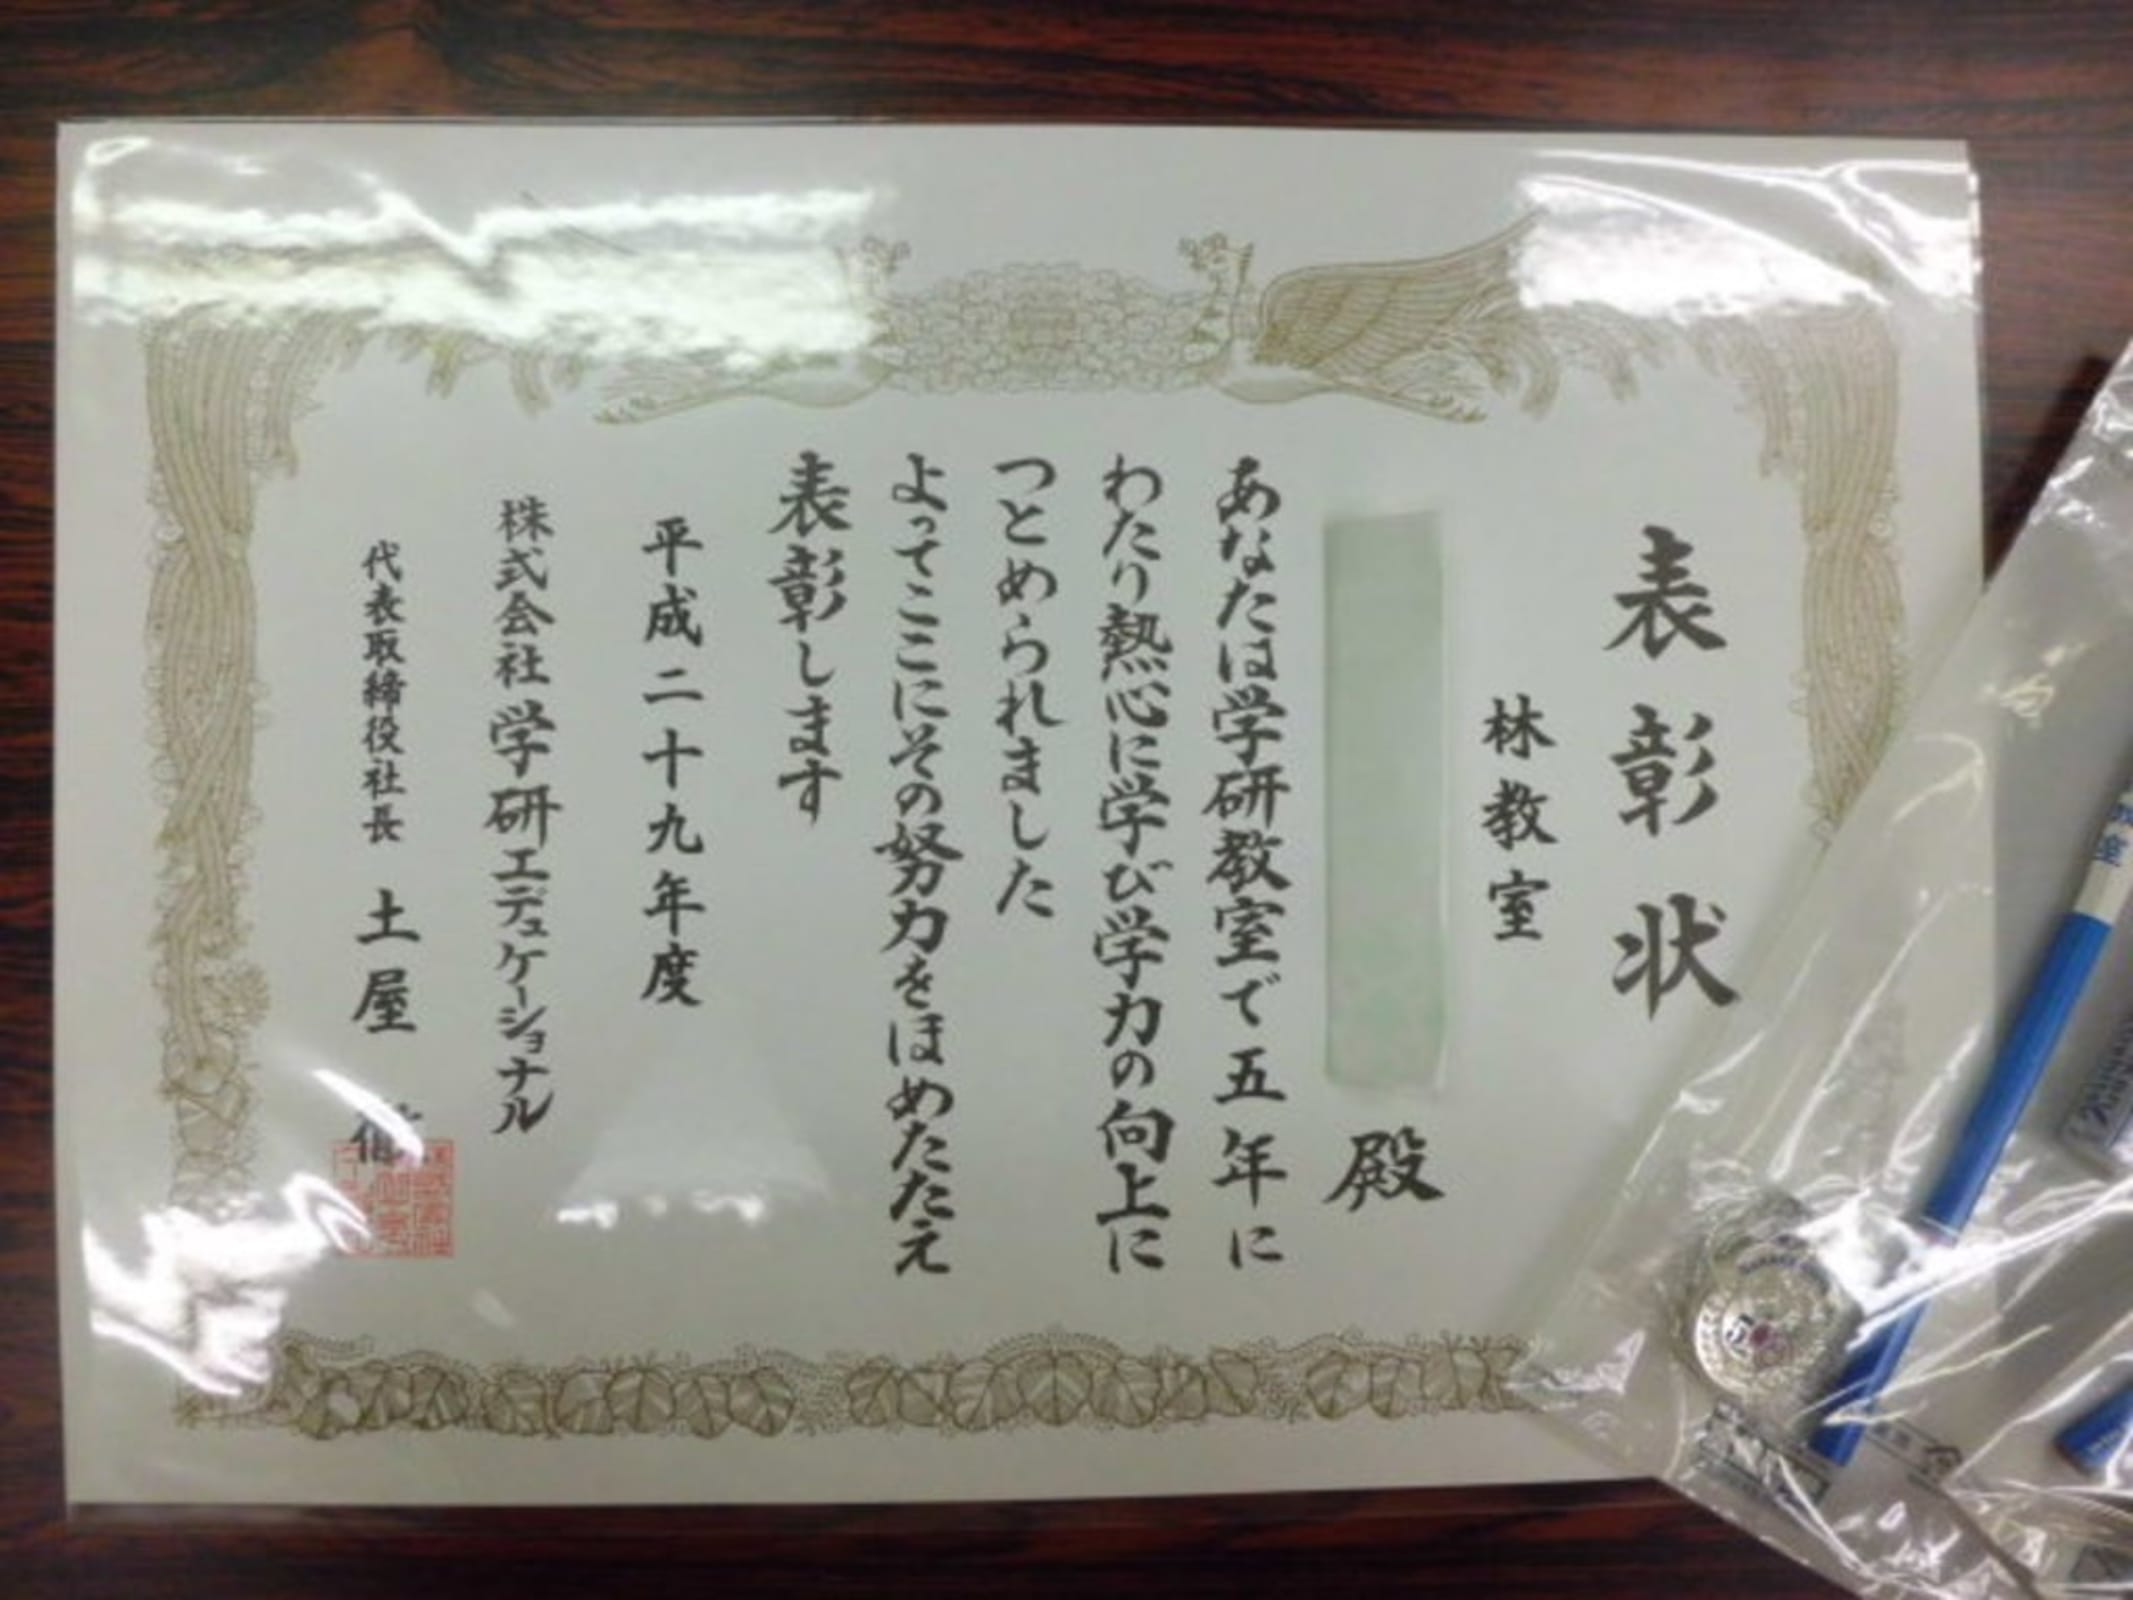 表彰状
林教室
殿
あなたは学研教室で五年に
わたり熱心に学び学力の向上に
つとめられました
よってここにその努力をほめたたえ
表彰します
平成二十九年度
株式会社学研エデュケーショナル
代表取締役社長 土屋